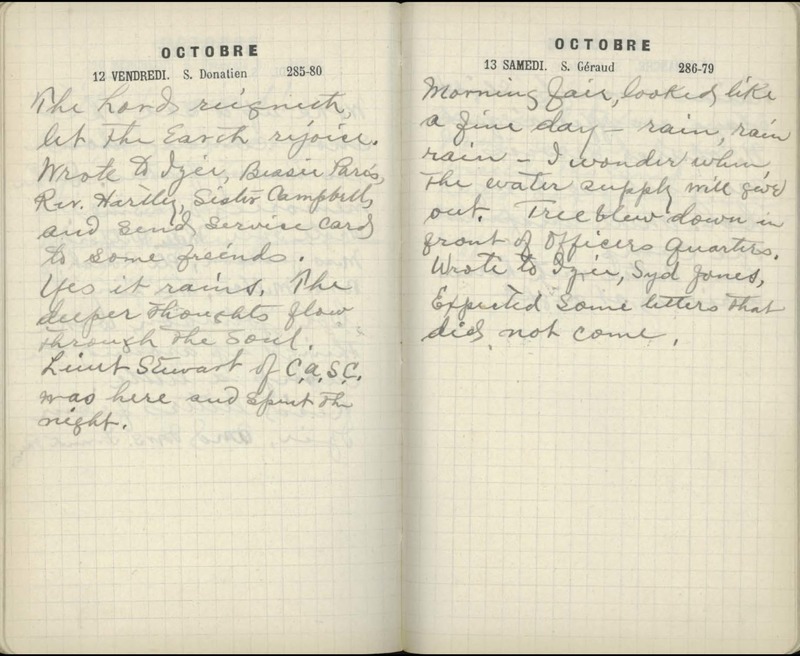 OCTOBRE
12 VENDREDI. S. Donatien 285-80
The Lord reigneth,
let the Earth rejoice.
Wrote to Izie, Bessie Paris,
Rev. Hartley, Sister Campbell,
and send service cards
to some freinds.
Yes it rains. The
deeper thoughts flow
through the soul.
Lieut Stewart of C.A.S.C.
was here and spent the
night.
OCTOBRE
13 SAMEDI. S. Géraud 286-79
Morning fair, looked like
a fine day – rain, rain
rain – I wonder when
the water supply will give
out. Tree blew down in
front of Officers Quarters.
Wrote to Izie, Syd Jones,
Expected some letters that
did not come.